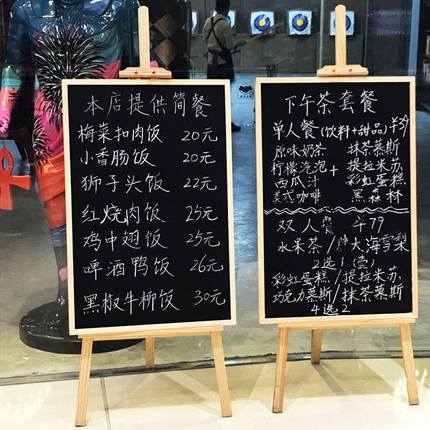 本店提供简餐
梅菜扣肉饭 20元
小香肠饭 20元
狮子头饭 22元
红烧肉饭 25元
鸡中翅饭 25元
啤酒鸭饭 26元
黑椒牛柳饭 30元
下午茶套餐
单人餐(饮料+甜品)¥39
原味奶茶 抹茶慕斯
柠檬泡泡+提拉米苏
西瓜汁 彩虹蛋糕
美式咖啡 黑森林
双人餐 ¥79
水果茶/胖大海雪梨
2选1(壶)
彩虹蛋糕/提拉米苏
巧克力慕斯/抹茶慕斯
4选2